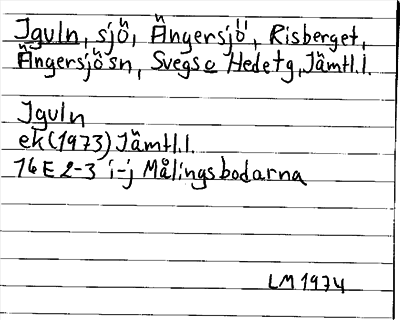 Iguln, sjö, Ängersjö, Risberget,
Ängersjösn, Svegs o Hedetg, Jämtl.l.
Iguln
ek (1973) Jämtl.l.
16 E 2-3 i-j Målingsbodarna
LM 1974